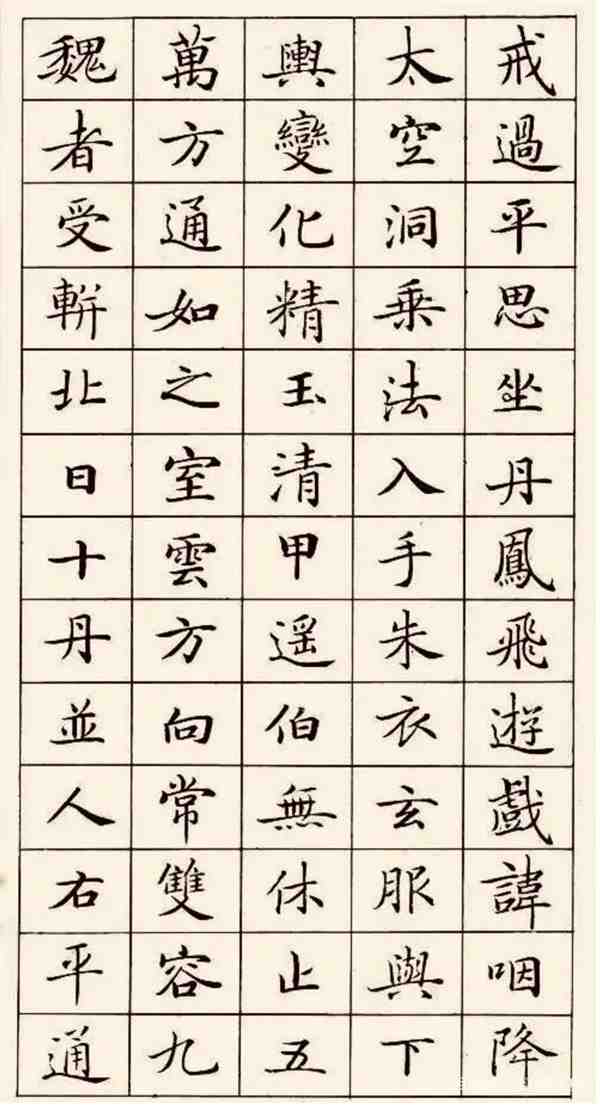 戒過平思坐丹鳳飛遊戲諱咽降
太空洞乗法入手朱衣玄服與下
輿變化精玉清甲遥伯無休止五
萬方通如之室雲方向常雙容九
魏者受軿北日十丹並人右平通